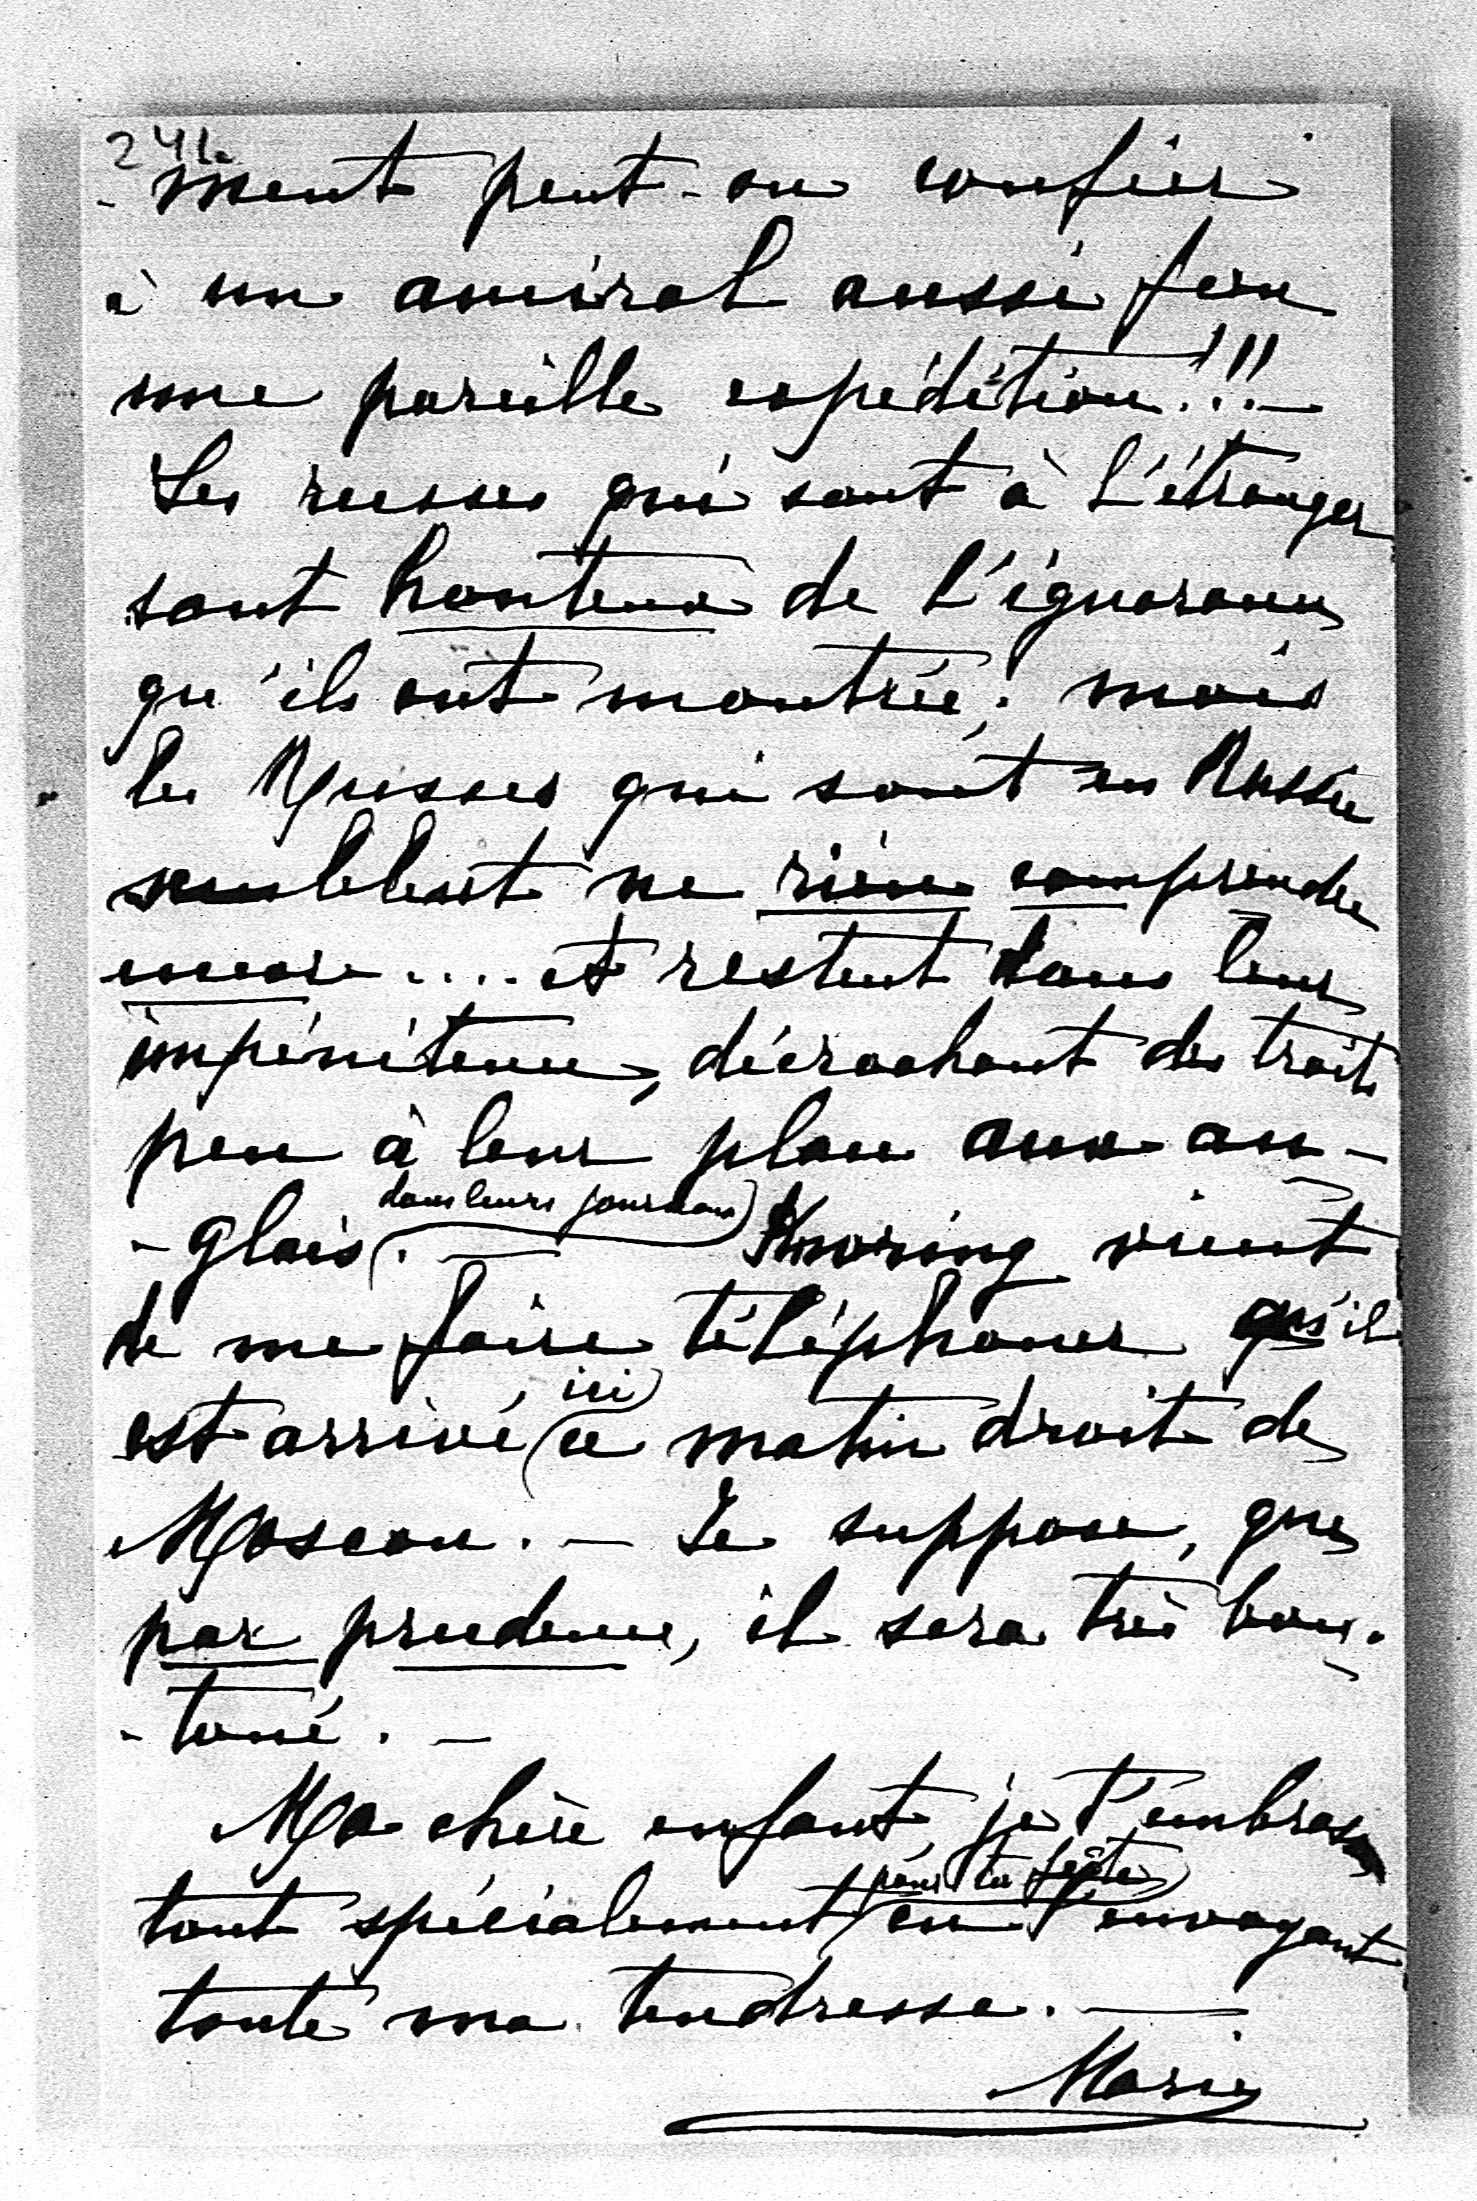 241.
-ment peut-on confier
à un amiral aussi fou
une pareille expédition!!! —
Les russes qui sont à l'étranger
sont honteux de l'ignorance
qu'ils ont montrée; mais
les Russes qui sont en Russie
semblent ne rien comprendre
encore .... et restent dans leur
impénitence, décrochant des traits
peu à leur place aux an-
dans leurs journaux
-glais. — Knorring vient
de me faire téléphoner qu'il
ici
est arrivé ce matin droit de
Moscou. — Je suppose, que
par prudence, il sera très bou-
-toné. —
Ma chère enfant, je t'embrasse
pour ta fête
tout spécialement en t'envoyant
toute ma tendresse. —
Marie